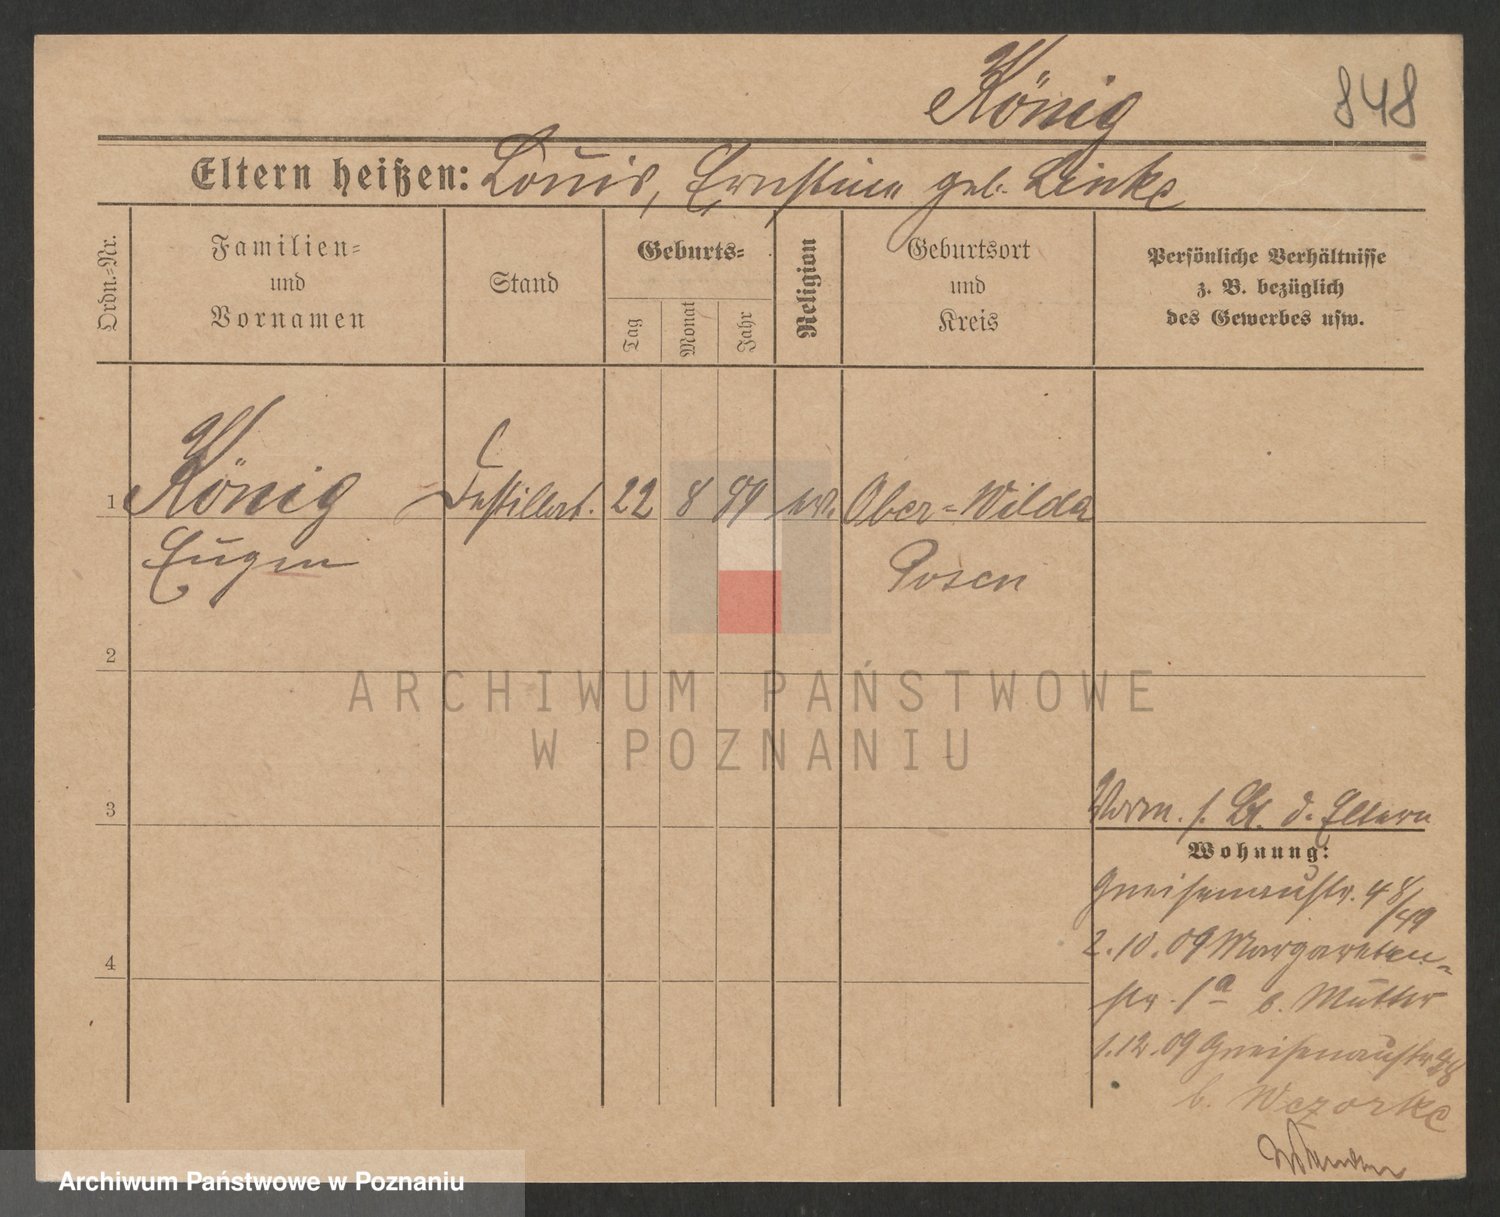 König
848
Eltern heißen: Louis, Ernstine geb. Linke
Ordn.-Nr.
Familien-
und
Vornamen
Stand
Geburts-
Tag
Monat
Jahr
Religion
Geburtsort
und
Kreis
Persönliche Verhältnisse
z. B. bezüglich
des Gewerbes usw.
1 König Destillat. 22 8 89 ev. Ober-Wilda
Eugen Posen
2
ARCHIWUM PAŃSTWOWE
W POZNANIU
3
Verm. s. Bl. d. Eltern
Wohnung:
Gneisenaustr. 48/49
2.10.09 Margareten-
4
str. 1a b. Mutter
1.12.09 Gneisenaustr.
b. Wezorke
Archiwum Państwowe w Poznaniu